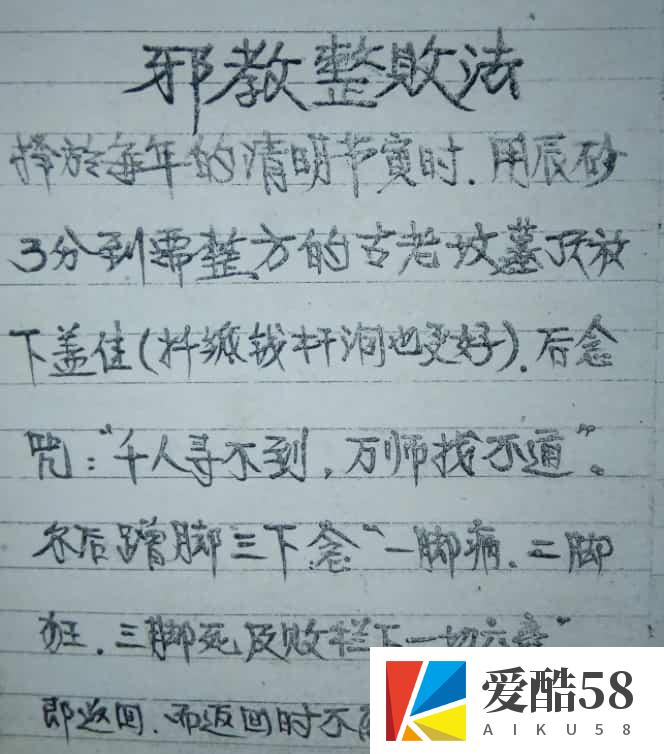 邪教整败法
择於每年的清明节寅时.用辰砂
3分到需整方的古老坟墓顶放
下盖住(扦纸钱杆洞也更好).后念
咒:“千人寻不到,万师找不通”。
尔后蹭脚三下念“一脚病.二脚
狂.三脚死及败栏下一切六畜”
即返回.而返回时不
爱酷58
AIKU58